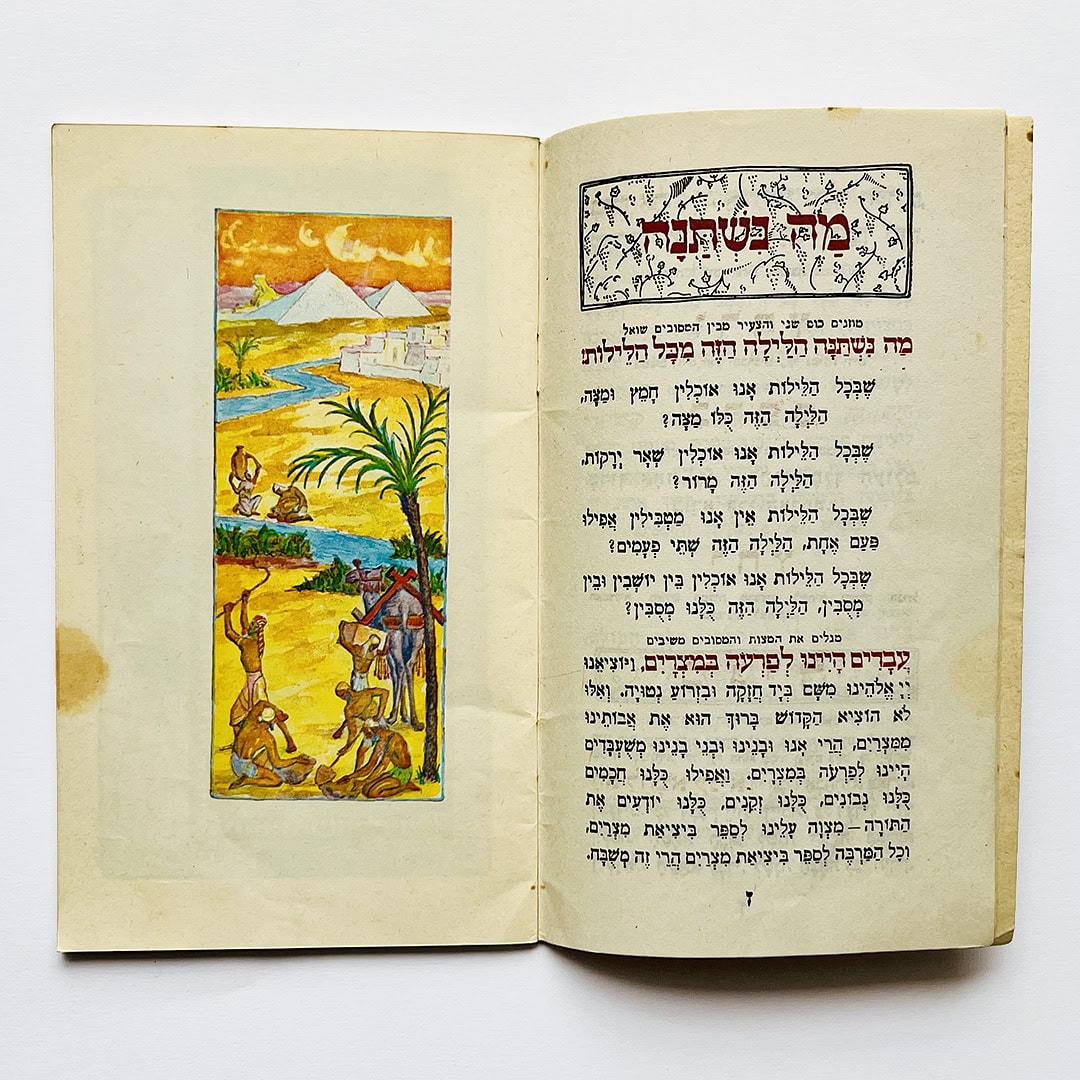 מַה נִּשְׁתַּנָּה
מוזגים כוס שני והצעיר מבין המסובים שואל
מַה נִּשְׁתַּנָּה הַלַּיְלָה הַזֶּה מִכָּל הַלֵּילוֹת:
שֶׁבְּכָל הַלֵּילוֹת אָנוּ אוֹכְלִין חָמֵץ וּמַצָּה,
הַלַּיְלָה הַזֶּה כֻּלּוֹ מַצָּה?
שֶׁבְּכָל הַלֵּילוֹת אָנוּ אוֹכְלִין שְׁאָר יְרָקוֹת,
הַלַּיְלָה הַזֶּה מָרוֹר?
שֶׁבְּכָל הַלֵּילוֹת אֵין אָנוּ מַטְבִּילִין אֲפִילוּ
פַּעַם אֶחָת, הַלַּיְלָה הַזֶּה שְׁתֵּי פְעָמִים?
שֶׁבְּכָל הַלֵּילוֹת אָנוּ אוֹכְלִין בֵּין יוֹשְׁבִין וּבֵין
מְסֻבִּין, הַלַּיְלָה הַזֶּה כֻּלָּנוּ מְסֻבִּין?
מגלים את המצות והמסובים משיבים
עֲבָדִים הָיִינוּ לְפַרְעֹה בְּמִצְרָיִם, וַיּוֹצִיאֵנוּ
יְיָ אֱלֹהֵינוּ מִשָּׁם בְּיָד חֲזָקָה וּבִזְרוֹעַ נְטוּיָה. וְאִלּוּ
לֹא הוֹצִיא הַקָּדוֹשׁ בָּרוּךְ הוּא אֶת אֲבוֹתֵינוּ
מִמִּצְרַיִם, הֲרֵי אָנוּ וּבָנֵינוּ וּבְנֵי בָנֵינוּ מְשֻׁעְבָּדִים
הָיִינוּ לְפַרְעֹה בְּמִצְרָיִם. וַאֲפִילוּ כֻּלָּנוּ חֲכָמִים
כֻּלָּנוּ נְבוֹנִים, כֻּלָּנוּ זְקֵנִים, כֻּלָּנוּ יוֹדְעִים אֶת
הַתּוֹרָה – מִצְוָה עָלֵינוּ לְסַפֵּר בִּיצִיאַת מִצְרַיִם,
וְכָל הַמַּרְבֶּה לְסַפֵּר בִּיצִיאַת מִצְרַיִם הֲרֵי זֶה מְשֻׁבָּח.
ז